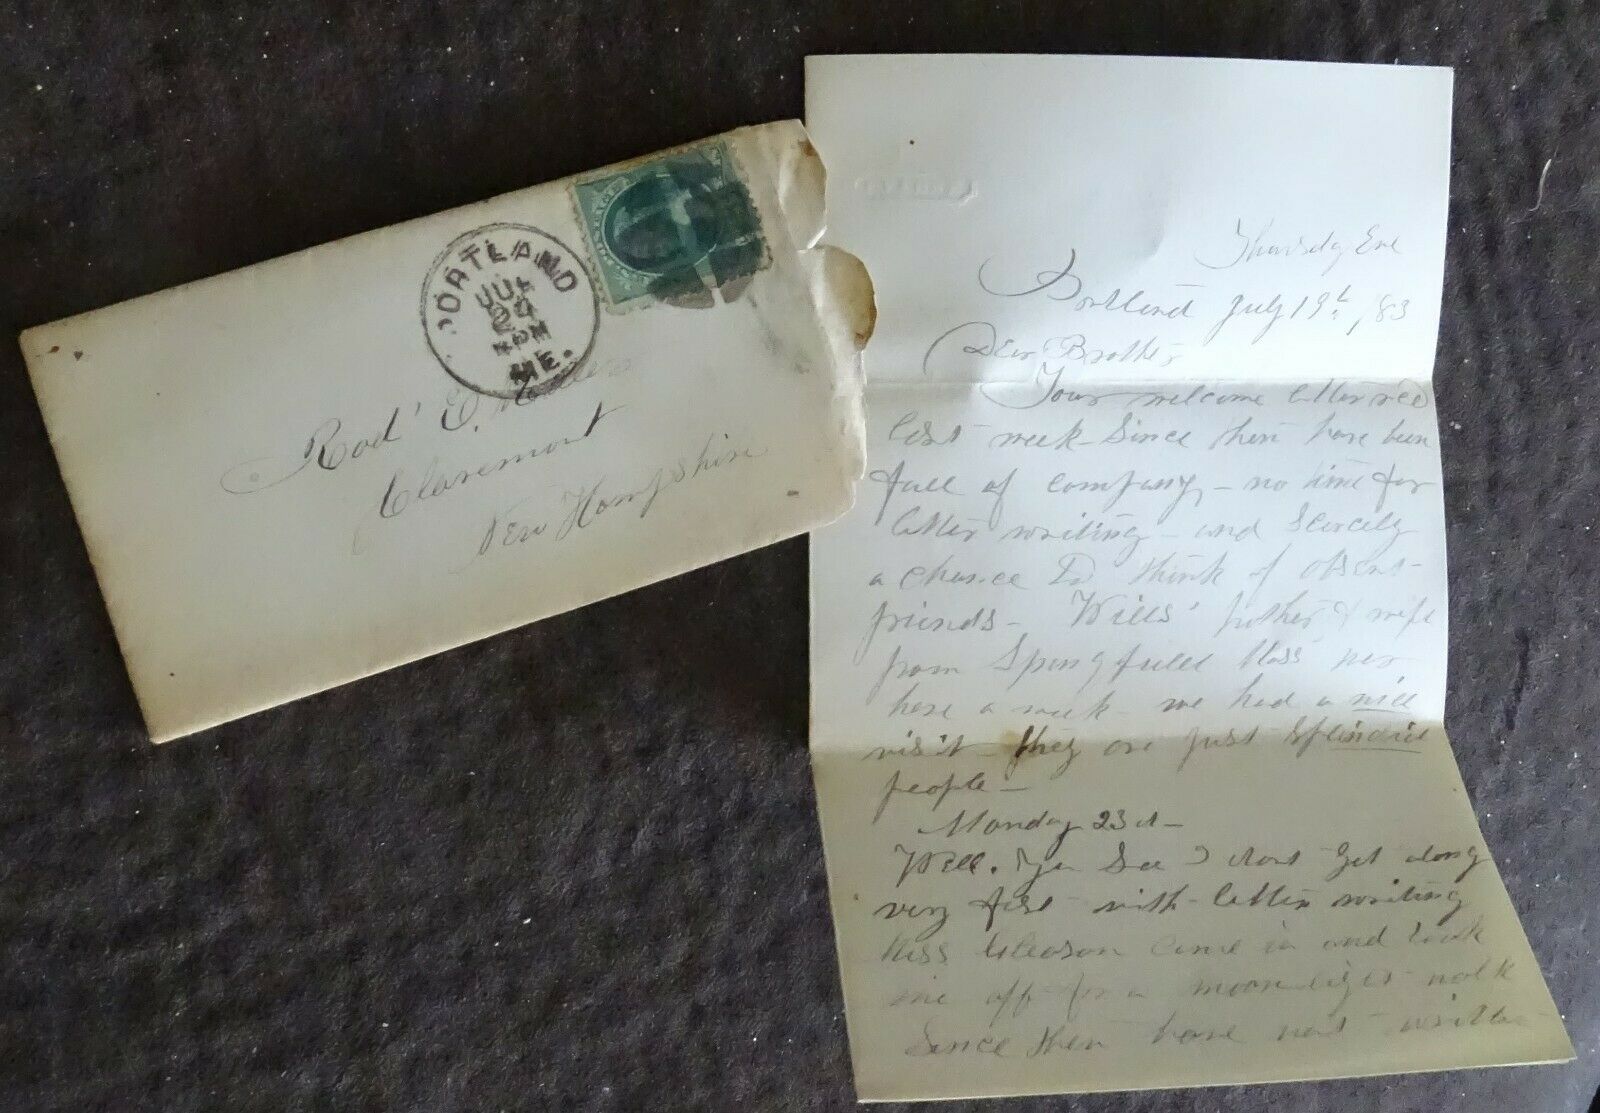 PORTLAND
JUL
24
4 PM
ME.
Rod' E.
Claremont
New Hampshire
Thursday Eve
Portland July 19th /83
Dear Brother
Your welcome letter rec'd
last week - Since then have been
full of company - no time for
letter writing - and scarcely
a chance to think of absent
friends - Wills' & wife
from Springfield Mass were
here a week - we had a nice
visit - they are just splendid
people -
Monday 23d -
Well. You See I dont get along
very fast with letter writing
Miss Gleason came in and took
me off for a moonlight walk
Since then have not written